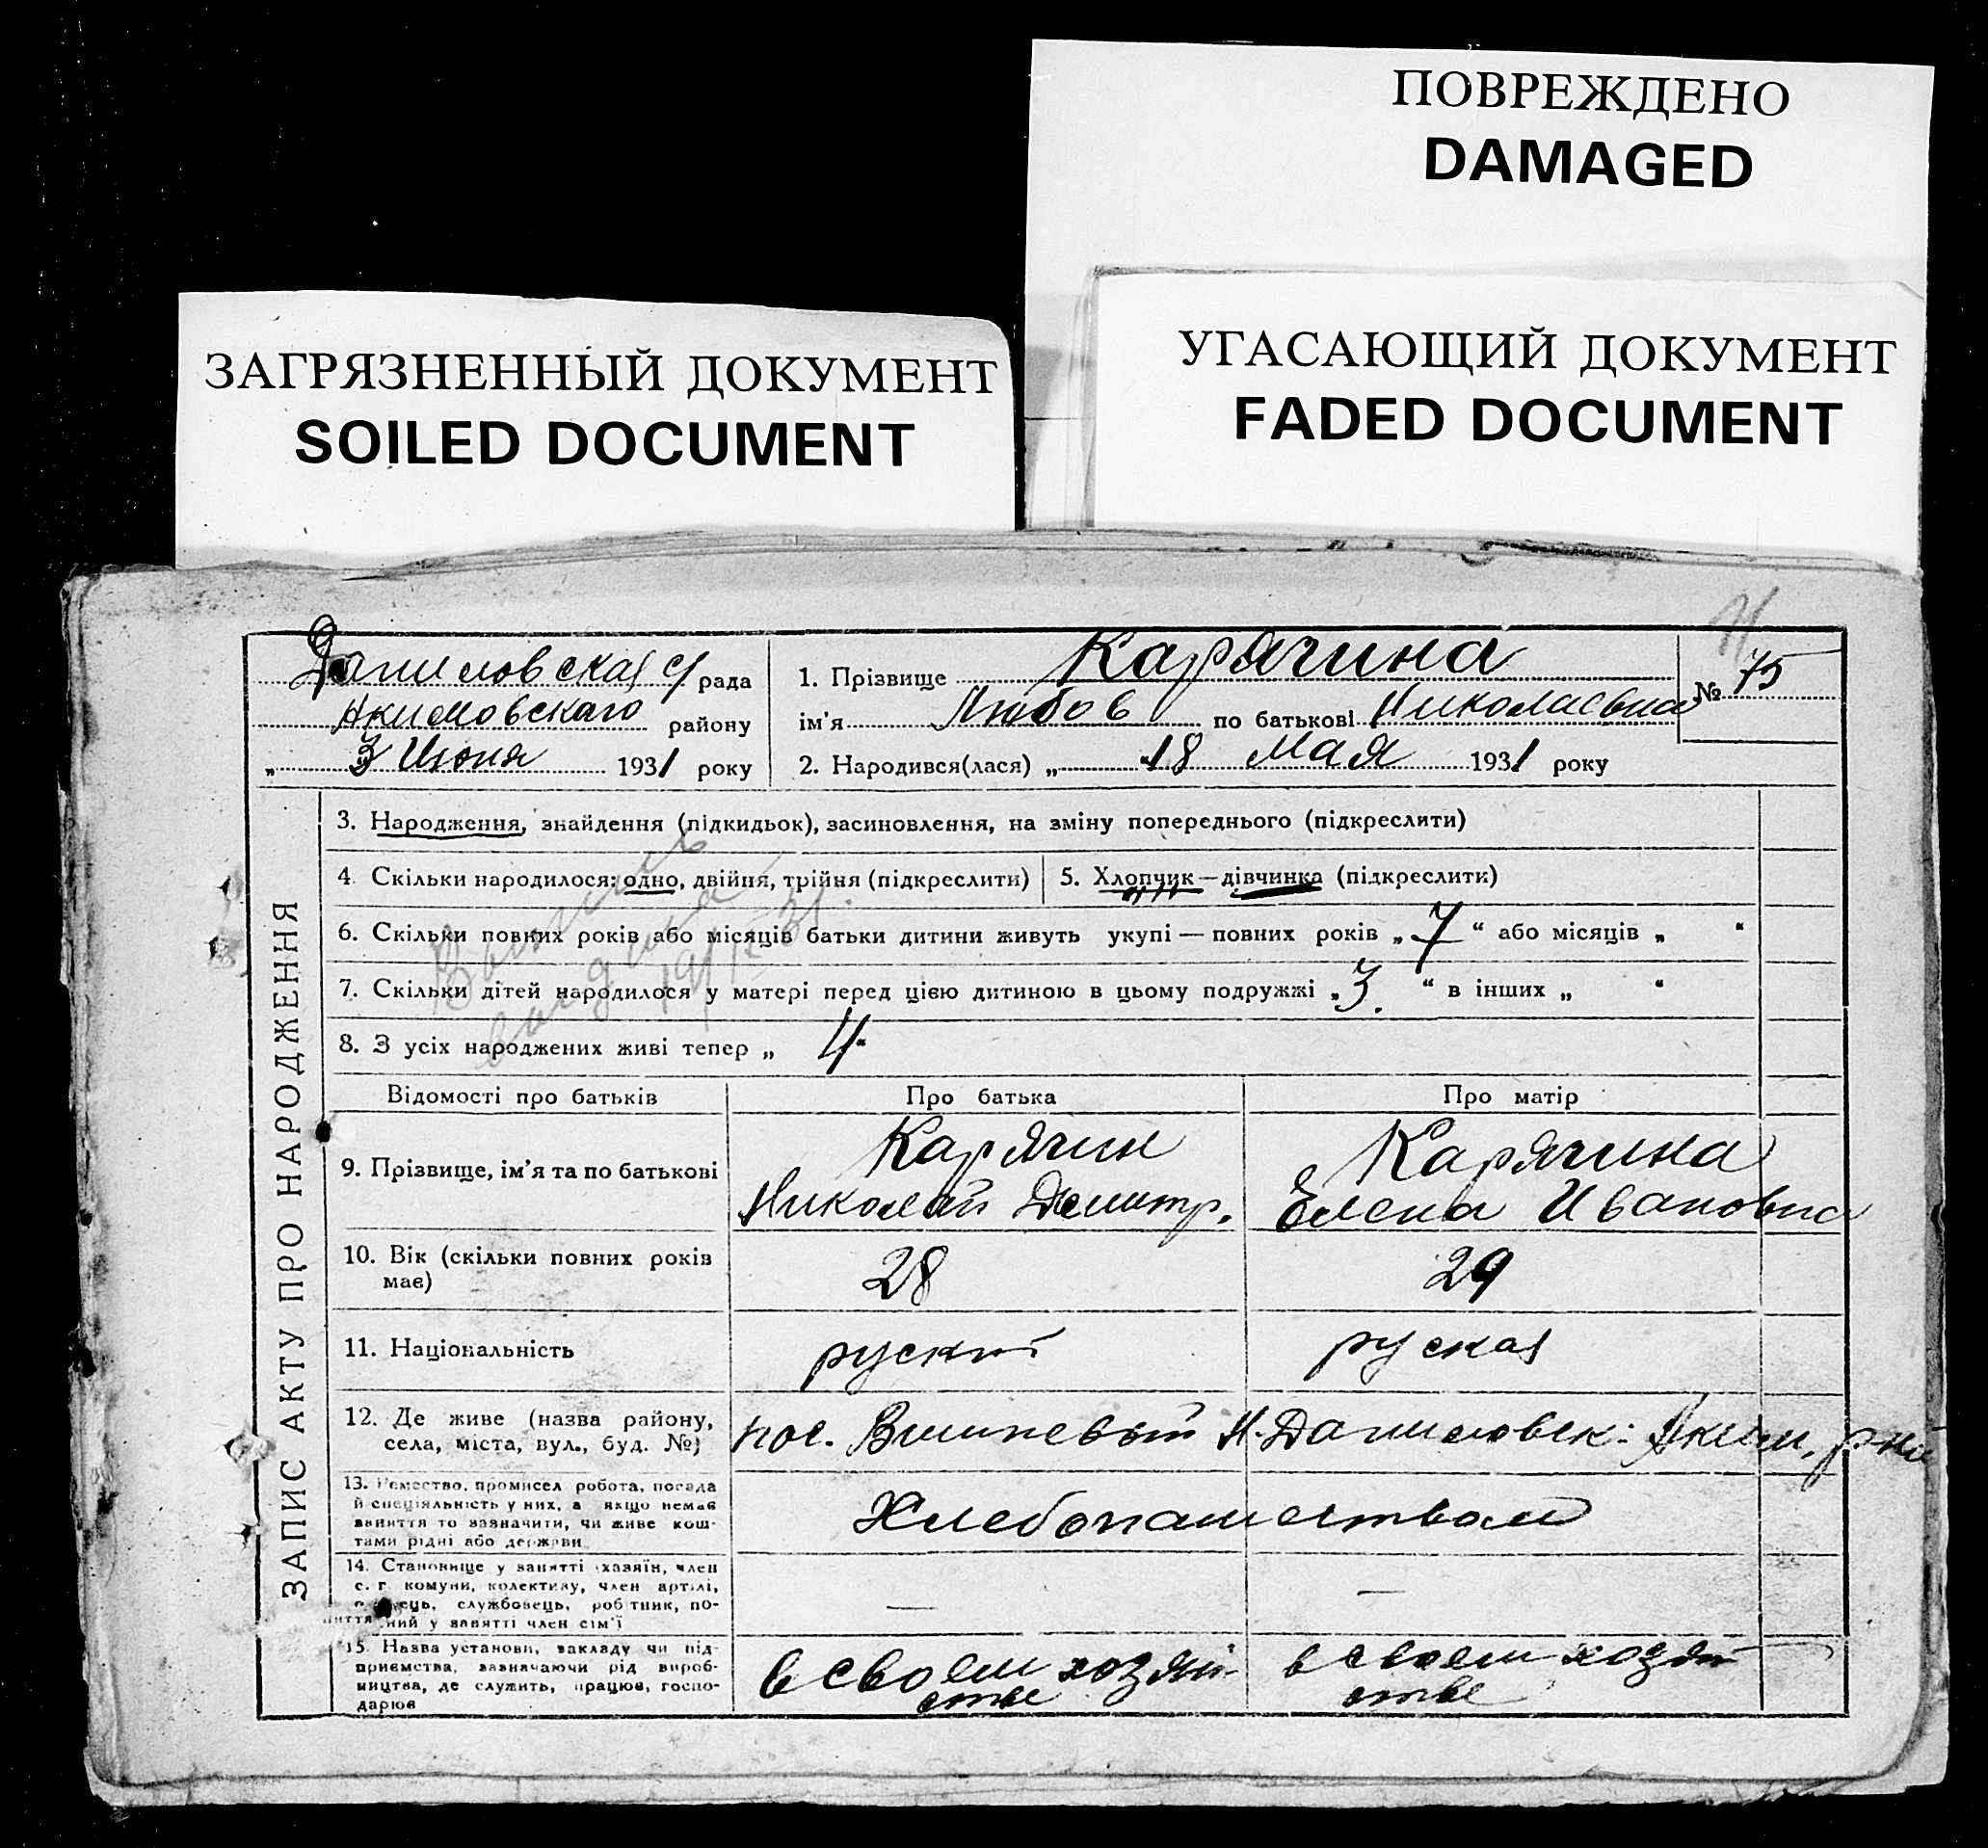 ПОВРЕЖДЕНО
DAMAGED
ЗАГРЯЗНЕННЫЙ ДОКУМЕНТ
SOILED DOCUMENT
УГАСАЮЩИЙ ДОКУМЕНТ
FADED DOCUMENT
Даниловская с/рада
Акимовского району
„ 3 Июня 1931 року
1. Прізвище Карячина
ім'я Любов по батькові Николаевна
№ 75
2. Народився(лася) „ 18 Мая 1931 року
ЗАПИС АКТУ ПРО НАРОДЖЕННЯ
3. Народження, знайдення (підкидьок), засиновлення, на зміну попереднього (підкреслити)
4. Скільки народилося: одно, двійня, трійня (підкреслити)
5. Хлопчик — дівчинка (підкреслити)
6. Скільки повних років або місяців батьки дитини живуть укупі — повних років „ 7 “ або місяців „ “
7. Скільки дітей народилося у матері перед цією дитиною в цьому подружжі „ 3. “ в інших „ “
8. З усіх народжених живі тепер „ 4“
Відомості про батьків Про батька Про матір
9. Прізвище, ім'я та по батькові
Карячин
Николай Демитр.
Карячина
Елена Ивановна
10. Вік (скільки повних років
має)
28
29
11. Національність
руский
руская
12. Де живе (назва району,
села, міста, вул., буд. №)
пос. Вишневый Н. Даниловск: Аким. р-на
13. Ремество, промисел робота, посада
й спеціяльність у них, а якщо немає
заняття то зазначити, чи живе кош-
тами рідні або держави
Хлебопашеством
14. Становище у занятті (хазяїн, член
с. г. комуни, колективу, член артілі,
службовець, робітник, по-
у занятті член сім'ї
—
—
15. Назва установи, закладу чи під-
приємства, зазначаючи рід вироб-
ництва, де служить, працює, госпо-
дарює
в своем хозяй-
стве
в своем хозяй
стве